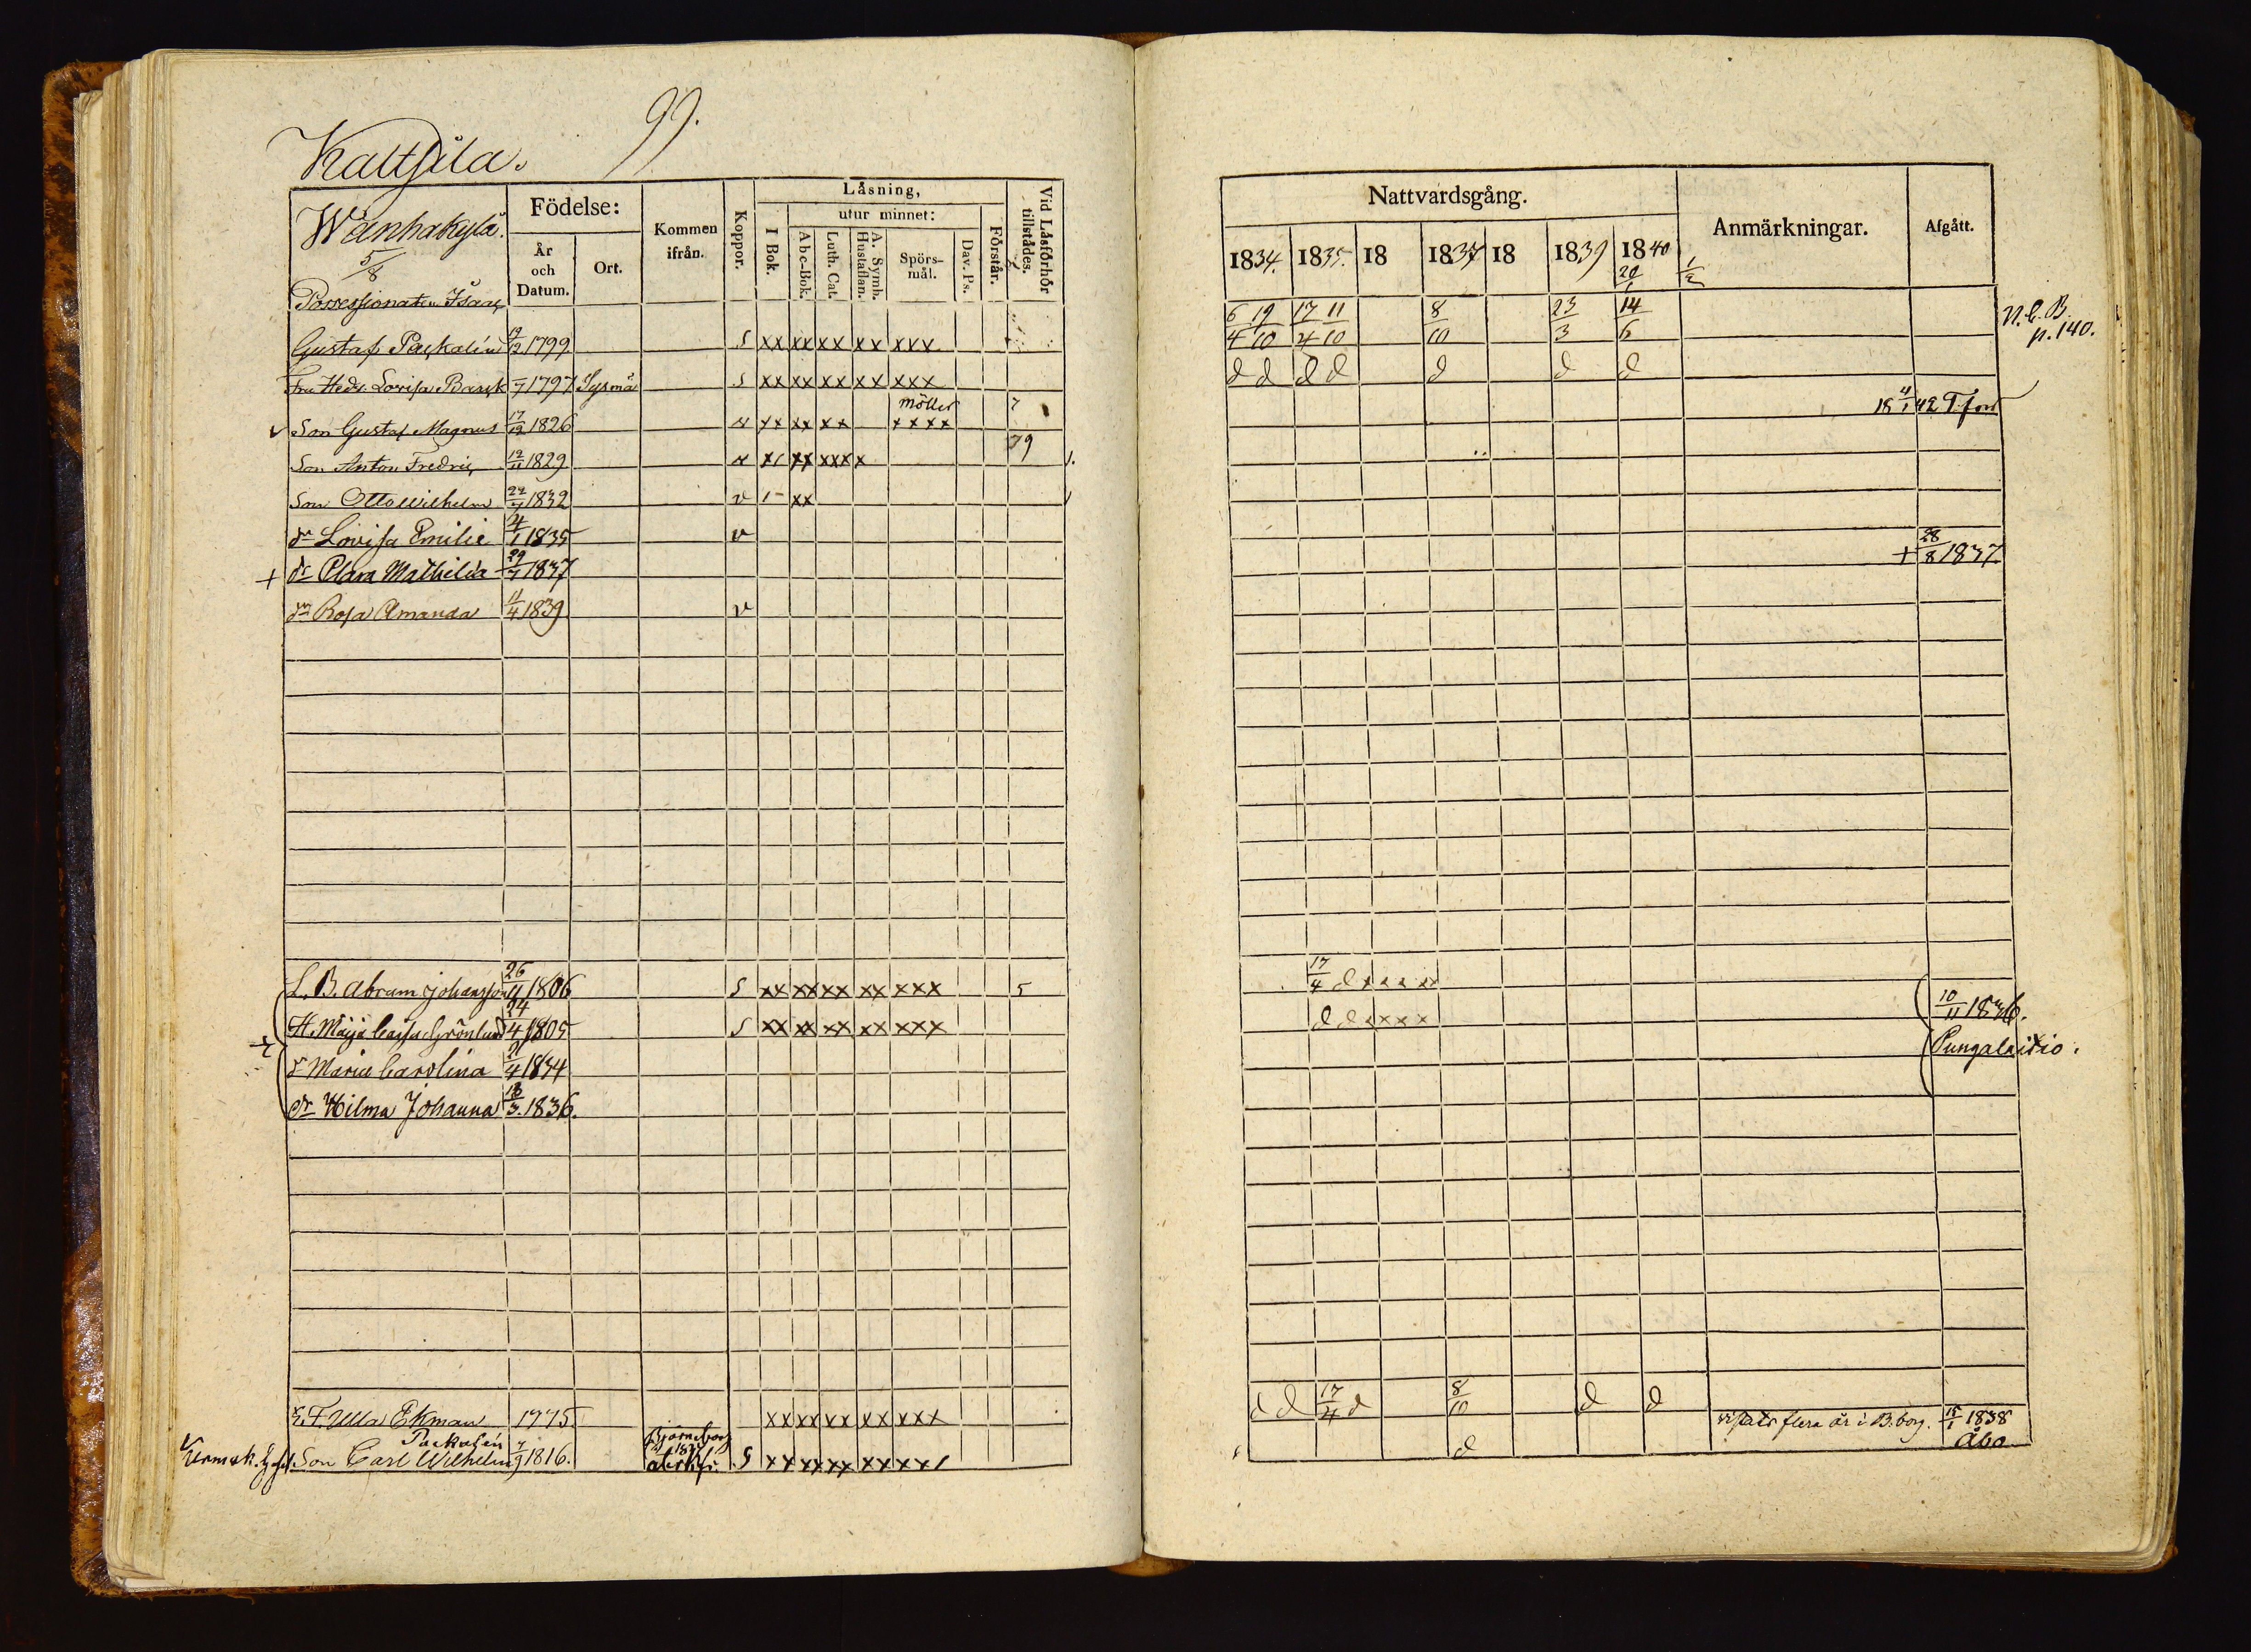 99.
Kaltsila.
Wanhakylä.
5/8
Födelse:
År och Datum.
Ort.
Kommen ifrån.
Koppor.
Låsning,
I Bok.
utur minnet:
Abc-Bok.
Luth. Cat.
A. Symb. Hustaflan.
Spörs-mål.
Dav. Ps.
Förstår.
Vid Låsförhör tillstädes.
Possessionaten Isaac
Gustaf Packalén 19/12 1799 S xx xx xx xx xxx
Fru Hedv. Lovisa Barck 1797 Sysmä S xx xx xx xx xxx
möller 7
Son Gustaf Magnus 17/12 1826 xx xx xx xxxx
39
Son Anton Fredric 12/11 1829 xx xxxx 1.
Son Otto Wilhelm 22/7 1832 v xx
dr Lovisa Emilie 4/1 1835 v
+ dr Clara Mathilda 29/7 1837
dr Rosa Amanda 11/4 1839 v
L. B. Abram Johansson 26/11 1806 S xx xx xx xx xxx 5
H. Maja Caisa Grönlund 24/4 1805 S xx xx xx xx xxx
dr Maria Carolina 21/4 1834
dr Hilma Johanna 13/3 1836.
E. F. Ulla Ekman 1775 xx xx xx xx xxx
Packalén
Björneborg
Son Carl Wilhelm 7/9 1816. S xx xx xx xx xx1
Nattvardsgång.
Anmärkningar.
Afgått.
1834. 1835. 18 1837 18 1839 1840
20/1 1/2
6/4 19/10 17/4 11/10 8/10 23/3 14/6
N. C. B.
p. 140.
d d d d d d d
18 4/1 42 T.fors
+ 28/8 1837
17/4 d xxxx
d d xxxx
10/11 1836.
Pungalaitio.
d d 17/4 d 8/10 d d
vistats flera år i B.borg. 15/1 1838
d
Åbo